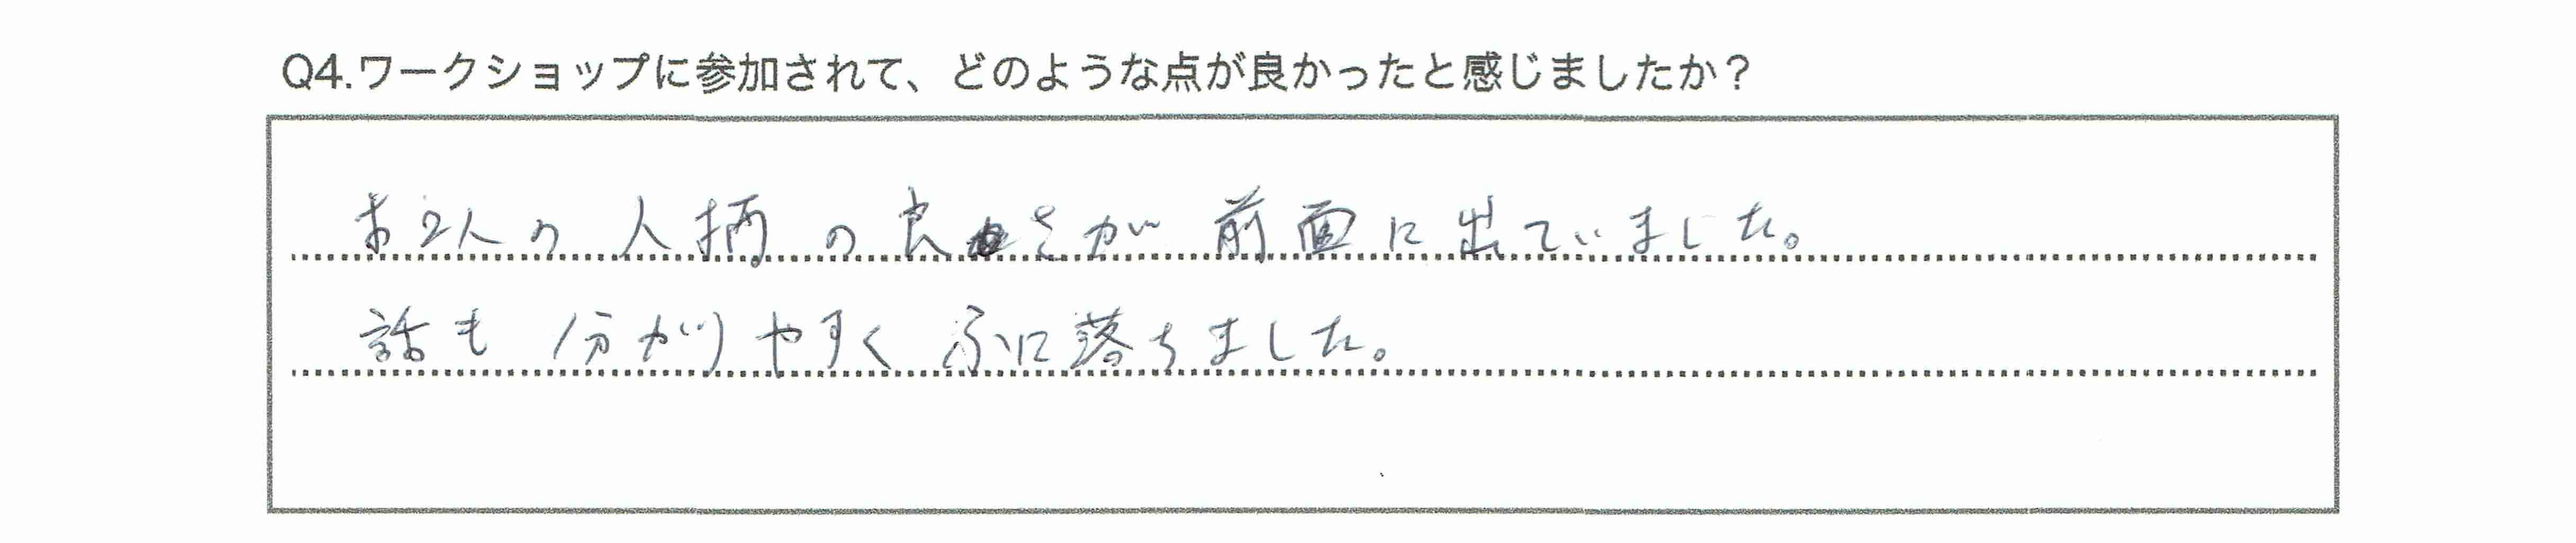 Q4.ワークショップに参加されて、どのような点が良かったと感じましたか？
お2人の人柄の良さが前面に出ていました。
話も分かりやすくふに落ちました。